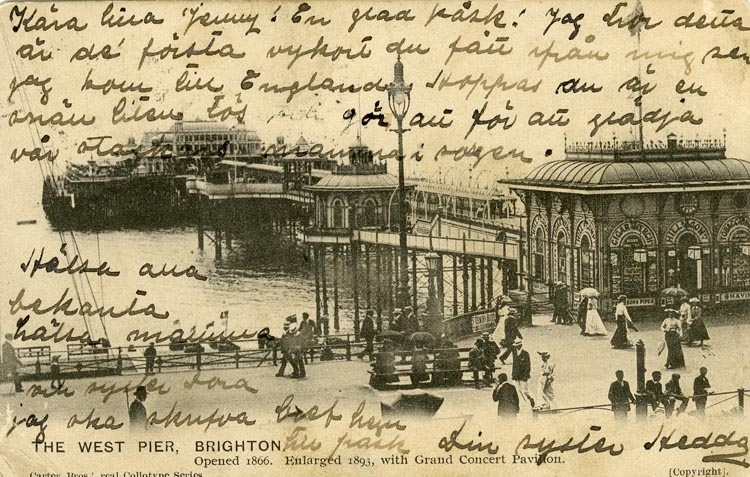 Kära lilla Jenny! En glad påsk! Jag tror detta
är de' första vykort du fått ifrån mig sen
jag kom till England. Hoppas du är en
snäll liten tös gör allt för att glädja
vår mamma i sorgen.
Hälsa alla
bekanta
hälsa mamma
och syster
jag ska skrifva bref hem
till påsk Din syster Hedda
THE WEST PIER, BRIGHTON,
Opened 1866. Enlarged 1893, with Grand Concert Pavilion.
Carter Bros.' real Collotype Series [Copyright].